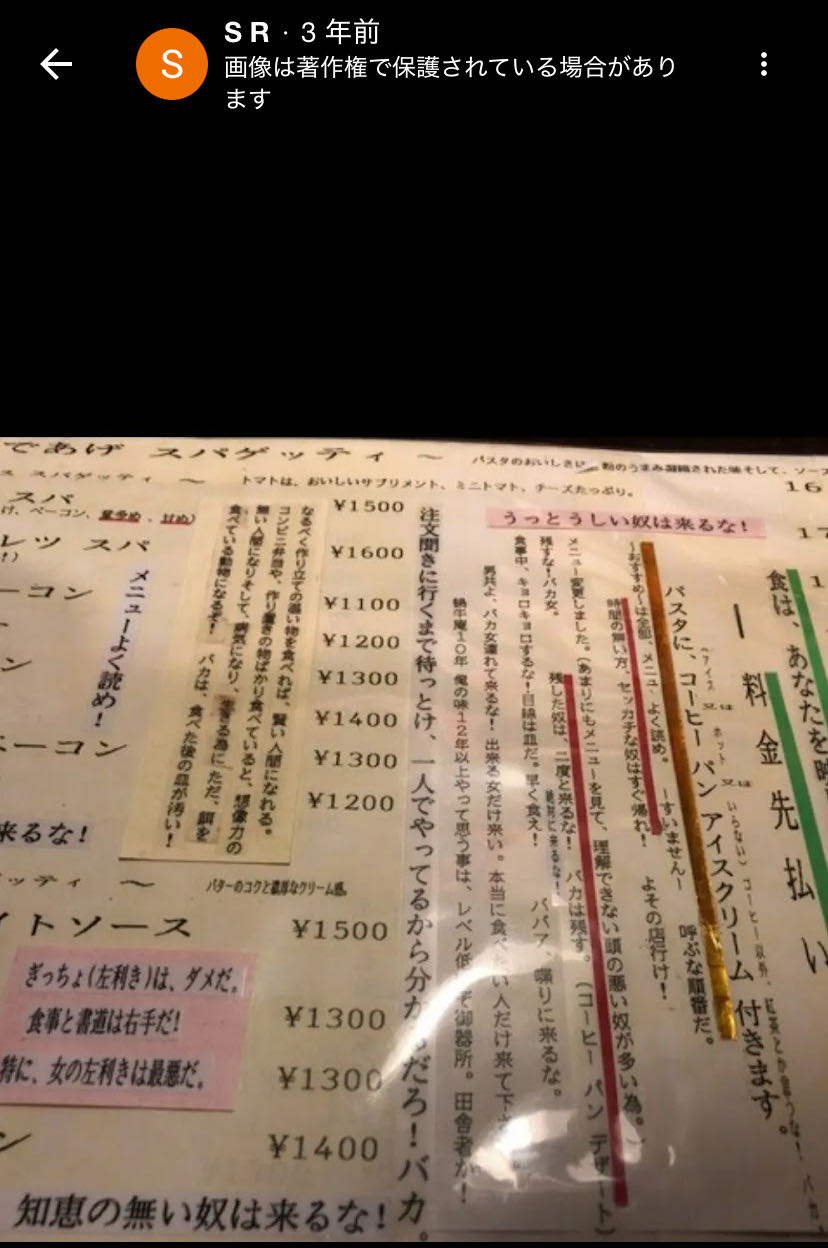 S R · 3 年前
画像は著作権で保護されている場合があり
ます
であげ スパゲッティ ～
パスタのおいしさは
粉のうまみ凝縮された味そして、ソース
スパゲッティ ～
トマトは、おいしいサプリメント、ミニトマト、チーズたっぷり。
食は、あなたを
料金先払い
パスタに、コーヒー パン アイスクリーム 付きます。
(アイス 又は ホット 又は いらない)
コーヒー以外、紅茶とか言うな! バカ。
～おすすめ～は全部、メニューよく読め。 ーすいませんー 呼ぶな順番だ。
時間の無い方、セッカチな奴はすぐ帰れ! よその店行け!
メニュー変更しました。(あまりにもメニューを見て、理解できない頭の悪い奴が多い為。)
残すな!バカ女。 残した奴は、二度と来るな! バカは残す。 (コーヒー パン デザート)
絶対に来るな!
食事中、キョロキョロするな!目線は皿だ。早く食え! ババア、喋りに来るな。
男共よ、バカ女連れて来るな! 出来る女だけ来い。本当に食べたい人だけ来て下さい。
蝸牛庵10年 俺の味12年以上やって思う事は、レベル低いぞ御器所。田舎者か!
うっとうしい奴は来るな!
注文聞きに行くまで待っとけ、一人でやってるから分かるだろ!バカ。
¥1500
¥1600
¥1100
¥1200
¥1300
¥1400
¥1300
¥1200
なるべく作り立ての温い物を食べれば、賢い人間になれる。
コンビニ弁当や、作り置きの物ばかり食べていると、想像力の
無い人間になりそして、病気になり、生きる為に ただ、餌を
食べている動物になるぞ! バカは、食べた後の皿が汚い!
メニューよく読め!
スパ
け、ベーコン、量多め、甘め)
レツ スパ
ーコン
ン
ーコン
来るな!
ゲッティ ～
バターのコクと濃厚なクリーム感。
イトソース
¥1500
¥1300
¥1300
¥1400
ぎっちょ(左利き)は、ダメだ。
食事と書道は右手だ!
特に、女の左利きは最悪だ。
ン
知恵の無い奴は来るな!